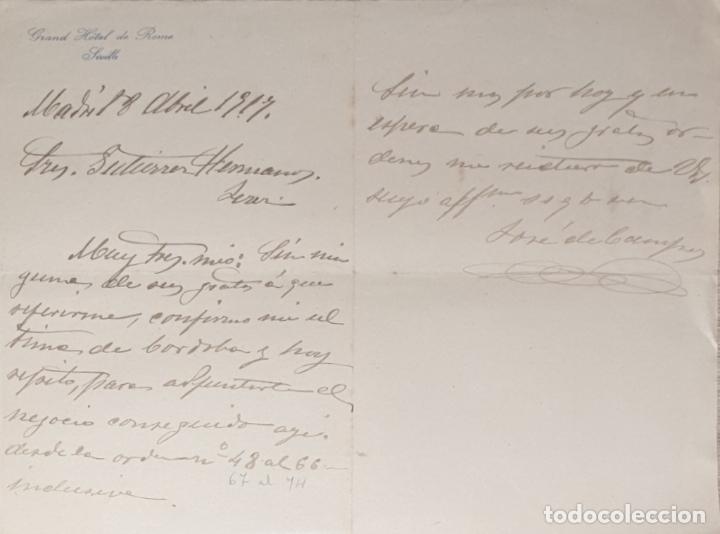 Grand Hôtel de Rome
Seville
Madrid 8 Abril 1917.
Sres. Gutierrez Hermanos.
Jerez
Muy Sres. mios: Sin nin
guna de sus gratas á que
referirme, confirmo mi ul
tima de Cordoba y hoy
repito, para adjuntarles el
negocio conseguido aqui.
desde la orden nº 48 al 66
67 al 74
inclusive.
Sin mas por hoy y en
espera de sus gratas or-
denes me reitero de Vds.
suyo affmo s s q b s m
José de Campos
todocoleccion
todocoleccion.net